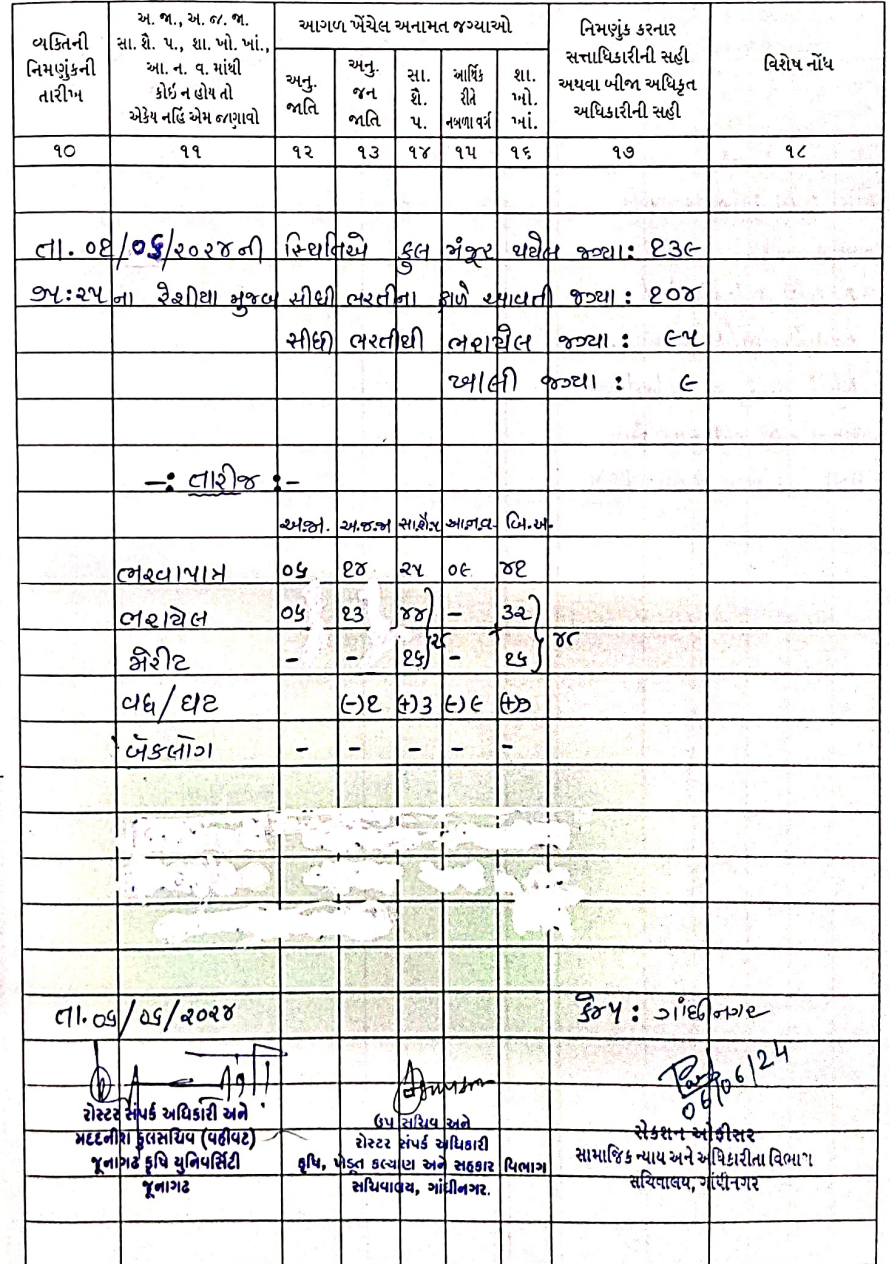 વ્યક્તિની નિમણુંકની તારીખ
અ. જા., અ. જ. જા. સા. શૈ. પ., શા. ખો. ખાં., આ. ન. વ. માંથી કોઇ ન હોય તો એકેય નહિં એમ જણાવો
આગળ ખેંચેલ અનામત જગ્યાઓ
અનુ. જાતિ
અનુ. જન જાતિ
સા. શૈ. પ.
આર્થિક રીતે નબળા વર્ગ
શા. ખો. ખાં.
નિમણુંક કરનાર સત્તાધિકારીની સહી અથવા બીજા અધિકૃત અધિકારીની સહી
વિશેષ નોંધ
૧૦ ૧૧ ૧૨ ૧૩ ૧૪ ૧૫ ૧૬ ૧૭ ૧૮
તા. ૦૧/૦૬/૨૦૨૪ની સ્થિતિએ કુલ મંજૂર થયેલ જગ્યા: ૧૩૯
૭૫:૨૫ના રેશીયા મુજબ સીધી ભરતીના ફાળે આવતી જગ્યા: ૧૦૪
સીધી ભરતીથી ભરાયેલ જગ્યા: ૯૫
ખાલી જગ્યા: ૯
-: તારીજ :-
અ.જા. અ.જ.જા સા.શૈ.પ આ.ન.વ. બિ.અ.
ભરવાપાત્ર ૦૬ ૧૪ ૨૫ ૦૯ ૪૧
ભરાયેલ ૦૬ ૧૩ - ૩૨
મેરીટ - - ૧૬ - ૧૬ ૪૮
વધ/ઘટ (-)૧ (+)૩ (-)૯ (+)૭
બેકલોગ - - - - -
તા. ૦૬/૦૬/૨૦૨૪ કેમ્પ: ગાંધીનગર
06/06/24
રોસ્ટર સંપર્ક અધિકારી અને
મદદનીશ કુલસચિવ (વહીવટ)
જૂનાગઢ કૃષિ યુનિવર્સિટી
જૂનાગઢ
ઉપ સચિવ અને
રોસ્ટર સંપર્ક અધિકારી
કૃષિ, ખેડૂત કલ્યાણ અને સહકાર વિભાગ
સચિવાલય, ગાંધીનગર.
સેકશન ઓફીસર
સામાજિક ન્યાય અને અધિકારીતા વિભાગ
સચિવાલય, ગાંધીનગર